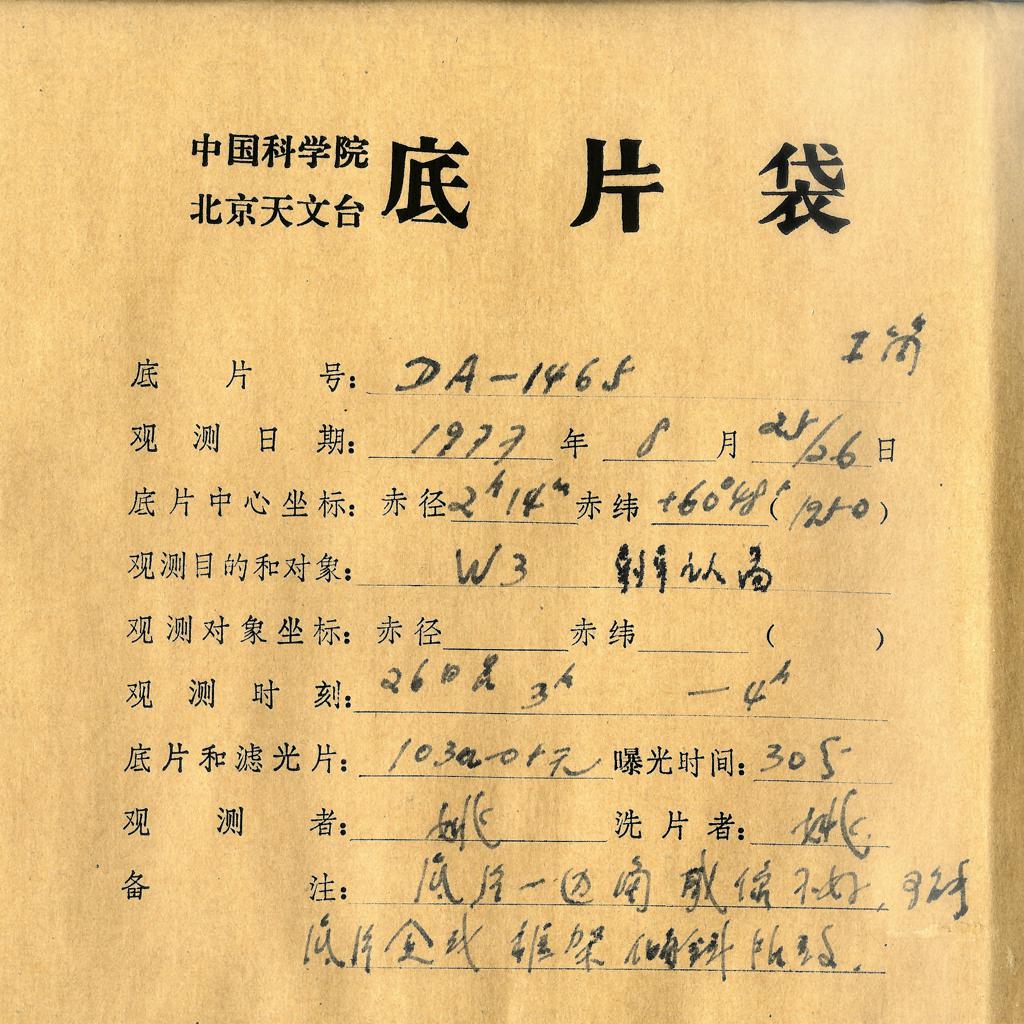 中国科学院
北京天文台 底片袋
底片号: DA-1465
观测日期: 1977年 8月 25/26日
底片中心坐标: 赤径 2h 14m 赤纬 +60°48′ (1950)
观测目的和对象: W3
观测对象坐标: 赤径 赤纬 ( )
观测时刻: 26日晨 3h — 4h
底片和滤光片: 103a-0+元 曝光时间: 30
观测者: 姚 洗片者: 姚
备注: 底片一边角成像不好,
底片盒或框架倾斜所致.